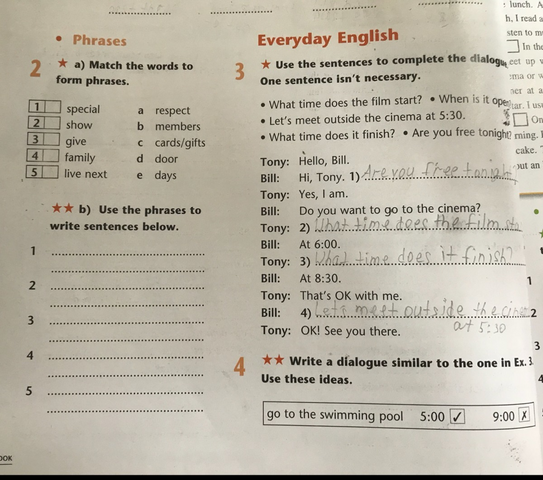 lunch. A
h. I read a
• Phrases
Everyday English
sten to m
2 ★ a) Match the words to
form phrases.
3 ★ Use the sentences to complete the dialogu
One sentence isn't necessary.
1 special a respect
2 show b members
3 give c cards/gifts
4 family d door
5 live next e days
• What time does the film start? • When is it open
• Let's meet outside the cinema at 5:30.
• What time does it finish? • Are you free tonight?
Tony: Hello, Bill.
Bill: Hi, Tony. 1) Are you free tonight
Tony: Yes, I am.
Bill: Do you want to go to the cinema?
Tony: 2) What time does the film sta
Bill: At 6:00.
Tony: 3) What time does it finish?
Bill: At 8:30.
Tony: That's OK with me.
Bill: 4) Let's meet outside the cinem
at 5:30
Tony: OK! See you there.
★★ b) Use the phrases to
write sentences below.
1
2
3
4
5
4 ★★ Write a dialogue similar to the one in Ex. 3.
Use these ideas.
go to the swimming pool 5:00 ✓ 9:00 ✗
OOK
In the
eet up v
ming. I
cake.
out an
1
2
3
4